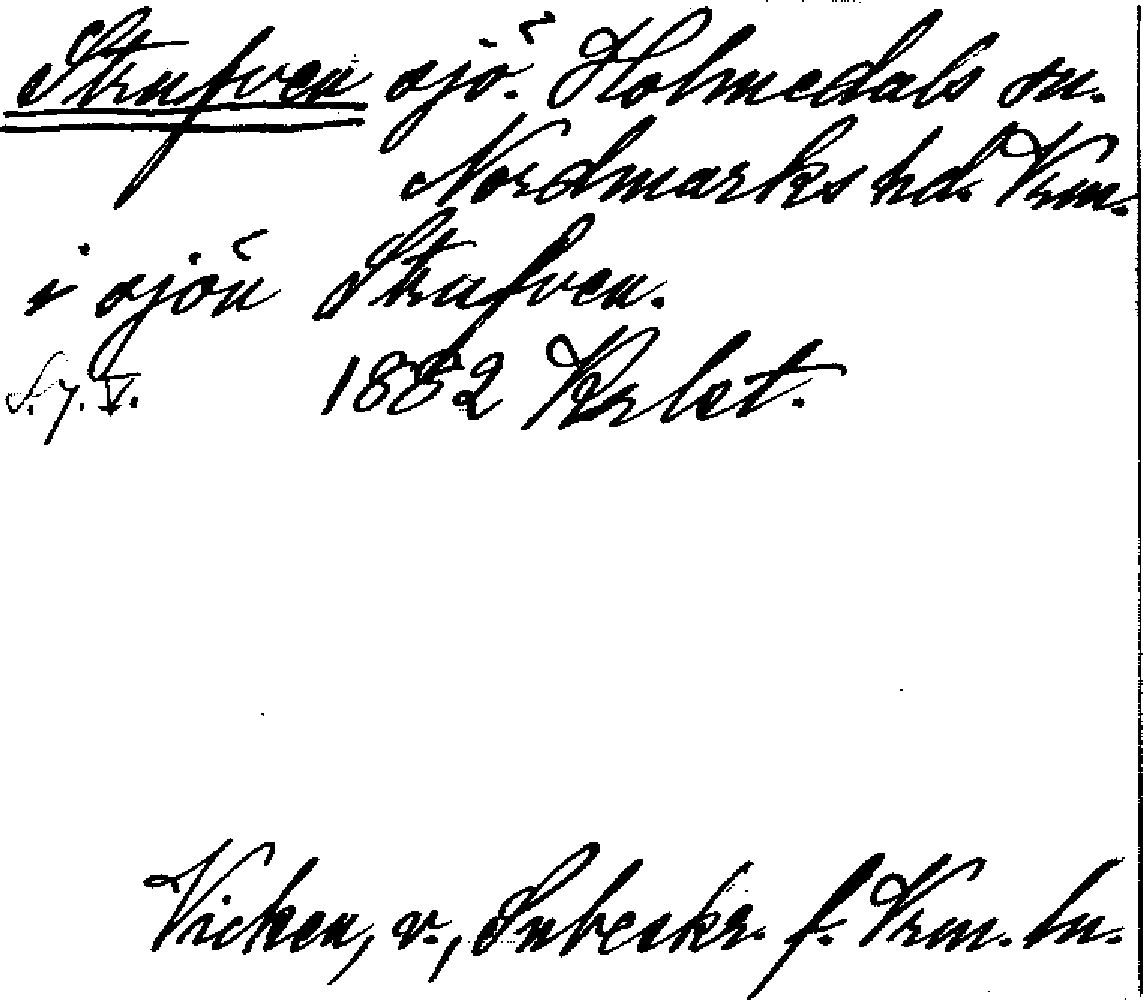 Strufven sjö. Holmedals sn.
Nordmarks hd. Vrm.
i sjön Strufven.
S. 7. V. 1882 Krlst.
Vicken, v., Snbeskr. f. Vrm. ln.